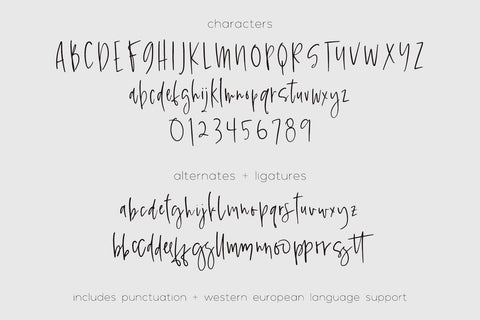 characters
ABCDEFGHIJKLMNOPQRSTUVWXYZ
abcdefghijklmnopqrstuvwxyz
0123456789
alternates + ligatures
abcdefghijklmnopqrstuvwxyz
bbccddeeffggllmmnnoopprrsstt
includes punctuation + western european language support